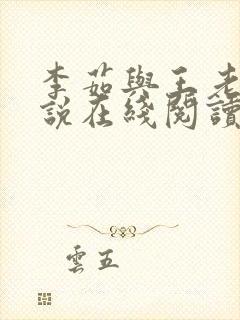 李茹與王老
説在綫閱讀
雲五